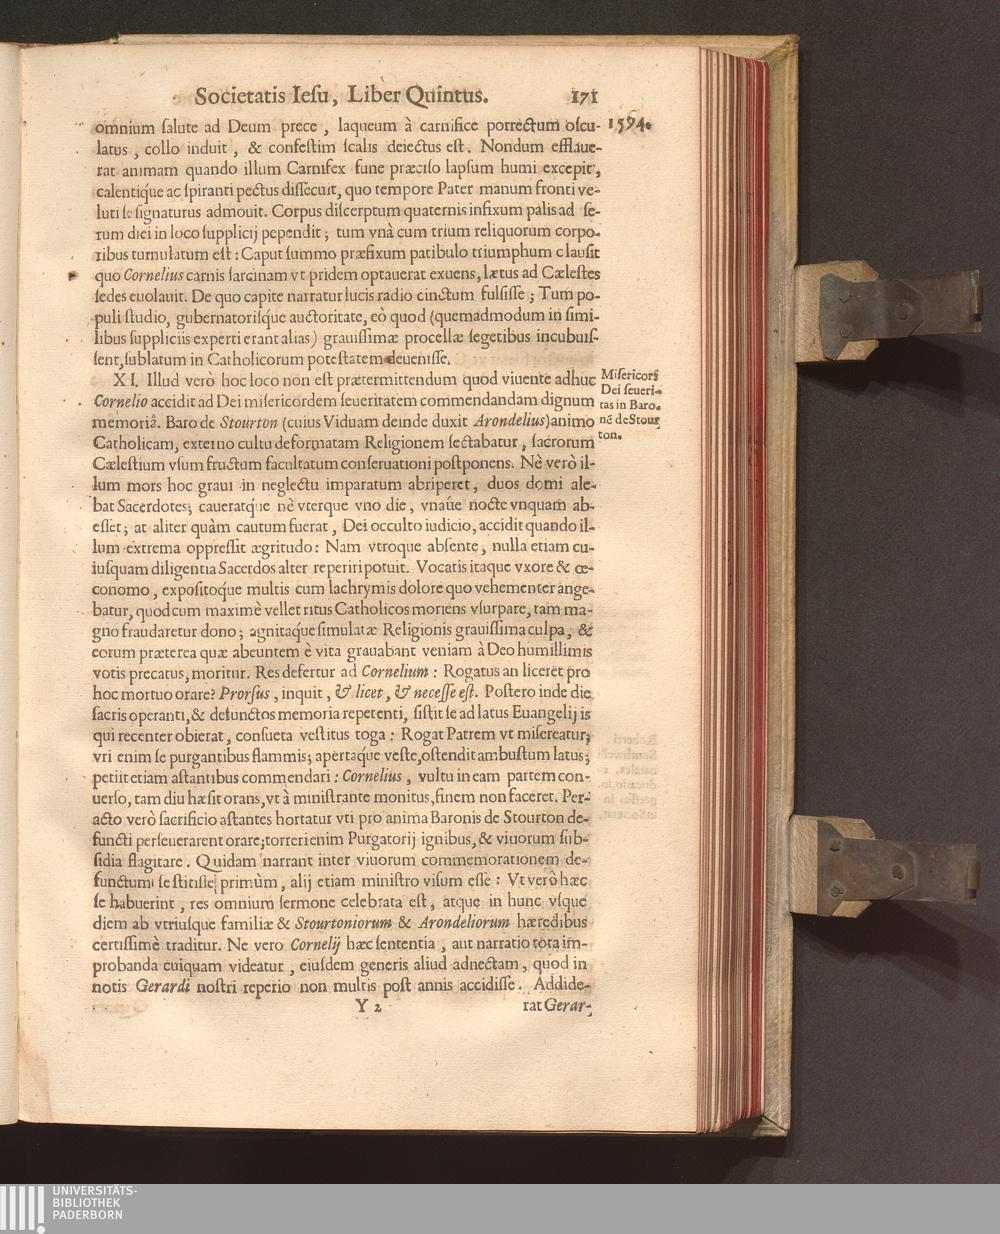 Societatis Iesu, Liber Quintus. 171
1594.
omnium ſalute ad Deum prece, laqueum à carnifice porrectum oſcu-
latus, collo induit, & confeſtim ſcalis deiectus eſt. Nondum efflaue-
rat animam quando illum Carnifex fune præciſo lapſum humi excepit,
calentiq́ue ac ſpiranti pectus diſſecuit, quo tempore Pater manum fronti ve-
luti ſe ſignaturus admouit. Corpus diſcerptum quaternis infixum palis ad ſe-
rum diei in loco ſupplicij pependit; tum vnà cum trium reliquorum corpo-
ribus tumulatum eſt: Caput ſummo præfixum patibulo triumphum clauſit
quo Cornelius carnis ſarcinam vt pridem optauerat exuens, lætus ad Cæleſtes
ſedes euolauit. De quo capite narratur lucis radio cinctum fulſiſſe; Tum po-
puli ſtudio, gubernatoriſq́ue auctoritate, eò quod (quemadmodum in ſimi-
libus ſuppliciis experti erant alias) grauiſſimæ procellæ ſegetibus incubuiſ-
ſent, ſublatum in Catholicorum poteſtatem deueniſſe.
XI. Illud verò hoc loco non eſt prætermittendum quod viuente adhuc
Cornelio accidit ad Dei miſericordem ſeueritatem commendandam dignum
memoriâ. Baro de Stourton (cuius Viduam deinde duxit Arondelius) animo
Catholicam, externo cultu deformatam Religionem ſectabatur, ſacrorum
Cæleſtium vſum fructum facultatum conſeruationi poſtponens. Nè verò il-
lum mors hoc graui in neglectu imparatum abriperet, duos domi ale-
bat Sacerdotes; caueratq́ue nè vterque vno die, vnaúe nocte vnquam ab-
eſſet; at aliter quàm cautum fuerat, Dei occulto iudicio, accidit quando il-
lum extrema oppreſſit ægritudo: Nam vtroque abſente, nulla etiam cu-
iuſquam diligentia Sacerdos alter reperiri potuit. Vocatis itaque vxore & œ-
conomo, expoſitoq́ue multis cum lachrymis dolore quo vehementer ange-
batur, quod cum maximè vellet ritus Catholicos moriens vſurpare, tam ma-
gno fraudaretur dono; agnitaq́ue ſimulatæ Religionis grauiſſima culpa, &
eorum præterea quæ abeuntem è vita grauabant veniam à Deo humillimis
votis precatus, moritur. Res defertur ad Cornelium: Rogatus an liceret pro
hoc mortuo orare? Prorſus, inquit, & licet, & neceſſe eſt. Poſtero inde die
ſacris operanti, & defunctos memoria repetenti, ſiſtit ſe ad latus Euangelij is
qui recenter obierat, conſueta veſtitus toga: Rogat Patrem vt miſereatur;
vri enim ſe purgantibus flammis; apertaq́ue veſte, oſtendit ambuſtum latus;
petiit etiam aſtantibus commendari: Cornelius, vultu in eam partem con-
uerſo, tam diu hæſit orans, vt à miniſtrante monitus, finem non faceret. Per-
acto verò ſacrificio aſtantes hortatur vti pro anima Baronis de Stourton de-
functi perſeuerarent orare; torreri enim Purgatorij ignibus, & viuorum ſub-
ſidia flagitare. Quidam narrant inter viuorum commemorationem de-
functum ſe ſtitiſſe primùm, alij etiam miniſtro viſum eſſe: Vt verò hæc
ſe habuerint, res omnium ſermone celebrata eſt, atque in hunc vſque
diem ab vtriuſque familiæ & Stourtoniorum & Arondeliorum hæredibus
certiſſimè traditur. Ne vero Cornelij hæc ſententia, aut narratio tota im-
probanda cuiquam videatur, eiuſdem generis aliud adnectam, quod in
notis Gerardi noſtri reperio non multis poſt annis accidiſſe. Addide-
Y 2 rat Gerar-
Miſericors
Dei ſeueri-
tas in Baro-
nē de Stour
ton.
UNIVERSITÄTS-
BIBLIOTHEK
PADERBORN